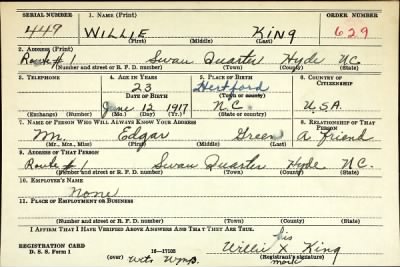 SERIAL NUMBER 1. NAME (Print) ORDER NUMBER
449 WILLIE KING 629
(First) (Middle) (Last)
2. ADDRESS (Print)
Route #1 Swan Quarter Hyde N.C.
(Number and street or R. F. D. number) (Town) (County) (State)
3. TELEPHONE 4. AGE IN YEARS 5. PLACE OF BIRTH 6. COUNTRY OF CITIZENSHIP
23 Hertford
DATE OF BIRTH (Town or county)
June 12 1917 N.C. U.S.A.
(Exchange) (Number) (Mo.) (Day) (Yr.) (State or country)
7. NAME OF PERSON WHO WILL ALWAYS KNOW YOUR ADDRESS 8. RELATIONSHIP OF THAT PERSON
Mr. Edgar Green A friend
(Mr., Mrs., Miss) (First) (Middle) (Last)
9. ADDRESS OF THAT PERSON
Route #1 Swan Quarter Hyde N.C.
(Number and street or R. F. D. number) (Town) (County) (State)
10. EMPLOYER'S NAME
None
11. PLACE OF EMPLOYMENT OR BUSINESS
(Number and street or R. F. D. number) (Town) (County) (State)
I AFFIRM THAT I HAVE VERIFIED ABOVE ANSWERS AND THAT THEY ARE TRUE.
his
REGISTRATION CARD Willie X King
D. S. S. Form 1 16—17105 (Registrant's signature)
(over) mark